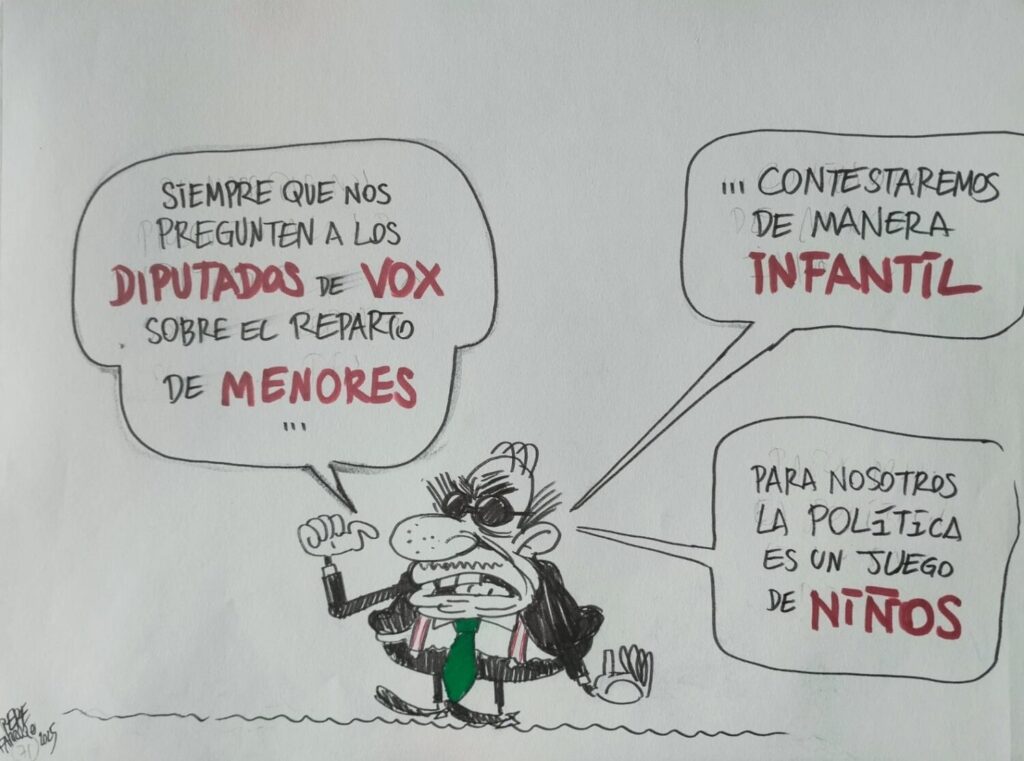 SIEMPRE QUE NOS
PREGUNTEN A LOS
DIPUTADOS DE VOX
SOBRE EL REPARTO
DE MENORES
...
... CONTESTAREMOS
DE MANERA
INFANTIL
PARA NOSOTROS
LA POLÍTICA
ES UN JUEGO
DE NIÑOS
2025